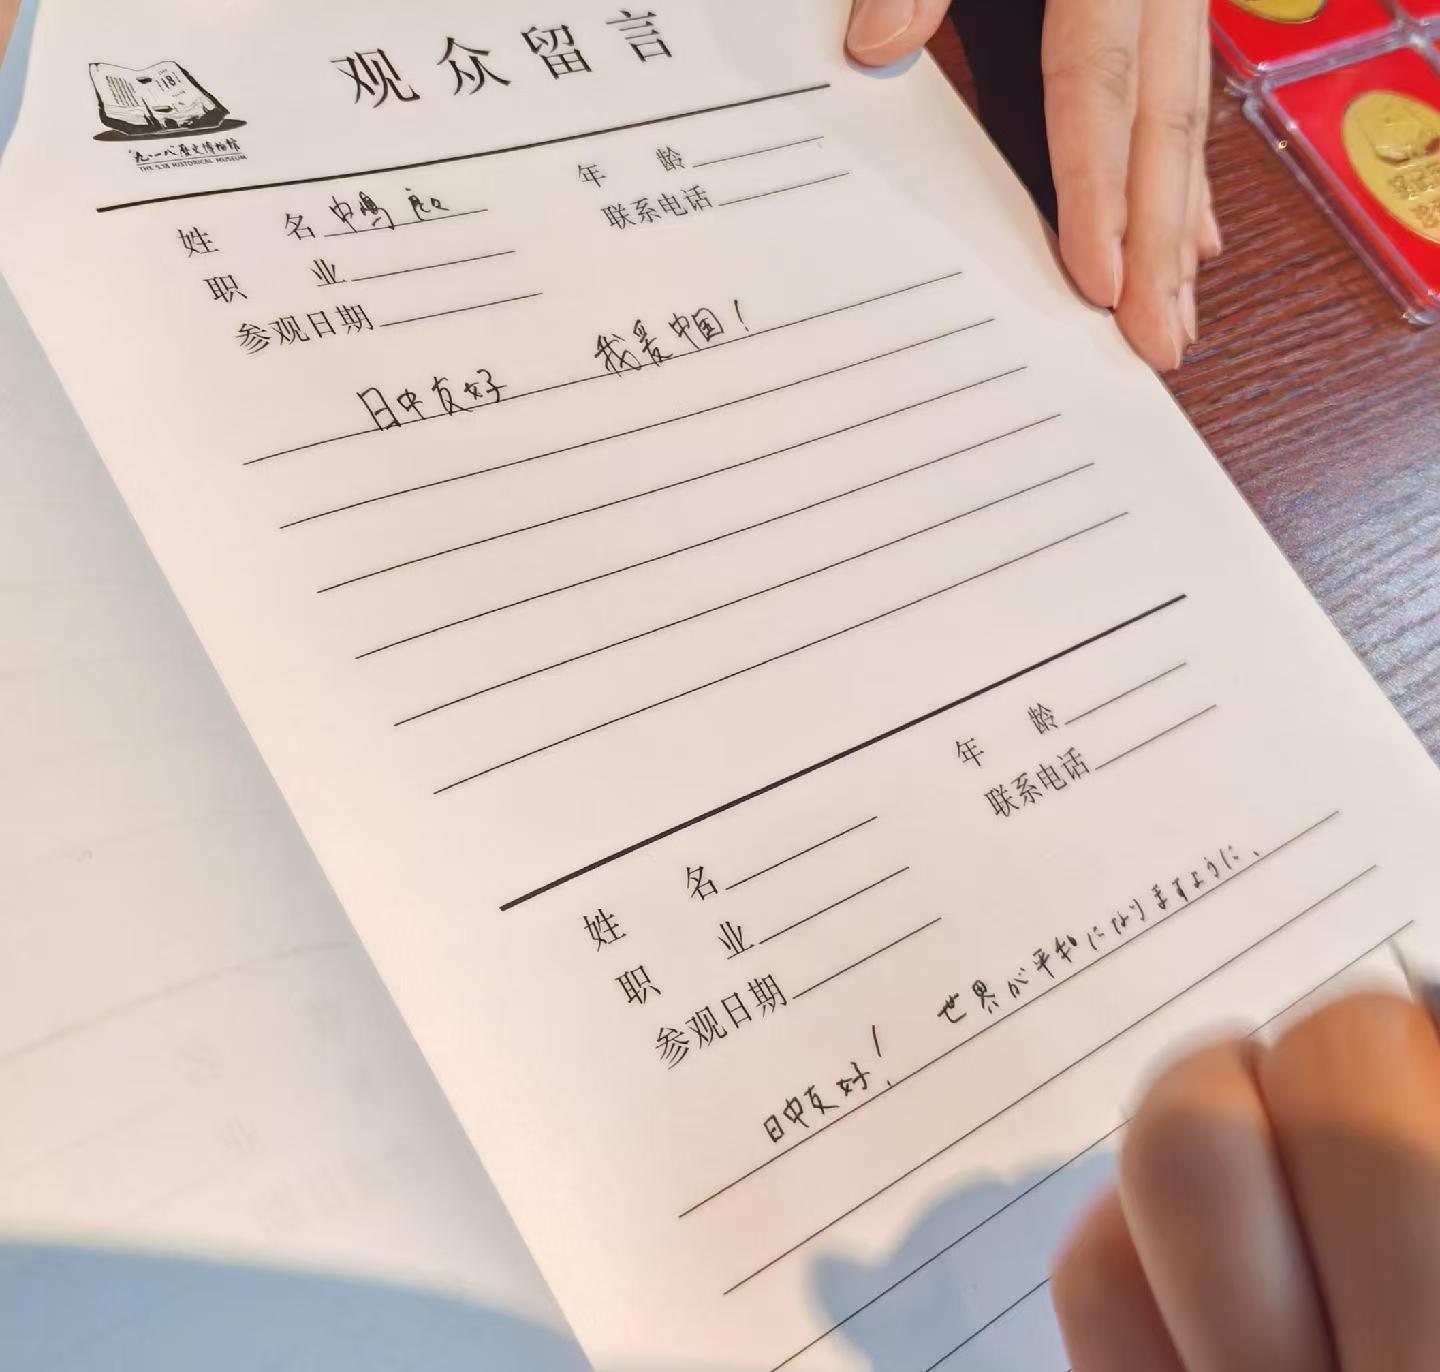 观众留言
九·一八历史博物馆
THE 9.18 HISTORICAL MUSEUM
姓 名 中嶋 年 龄
职 业 联系电话
参观日期
日中友好 我爱中国！
姓 名 年 龄
职 业 联系电话
参观日期
日中友好！ 世界が平和になりますように、